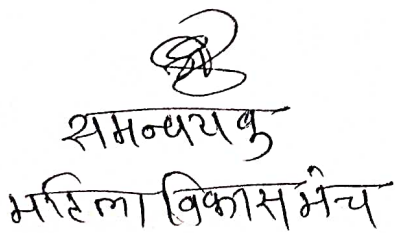 श्री
समन्वयकु
महिला विकास मंच